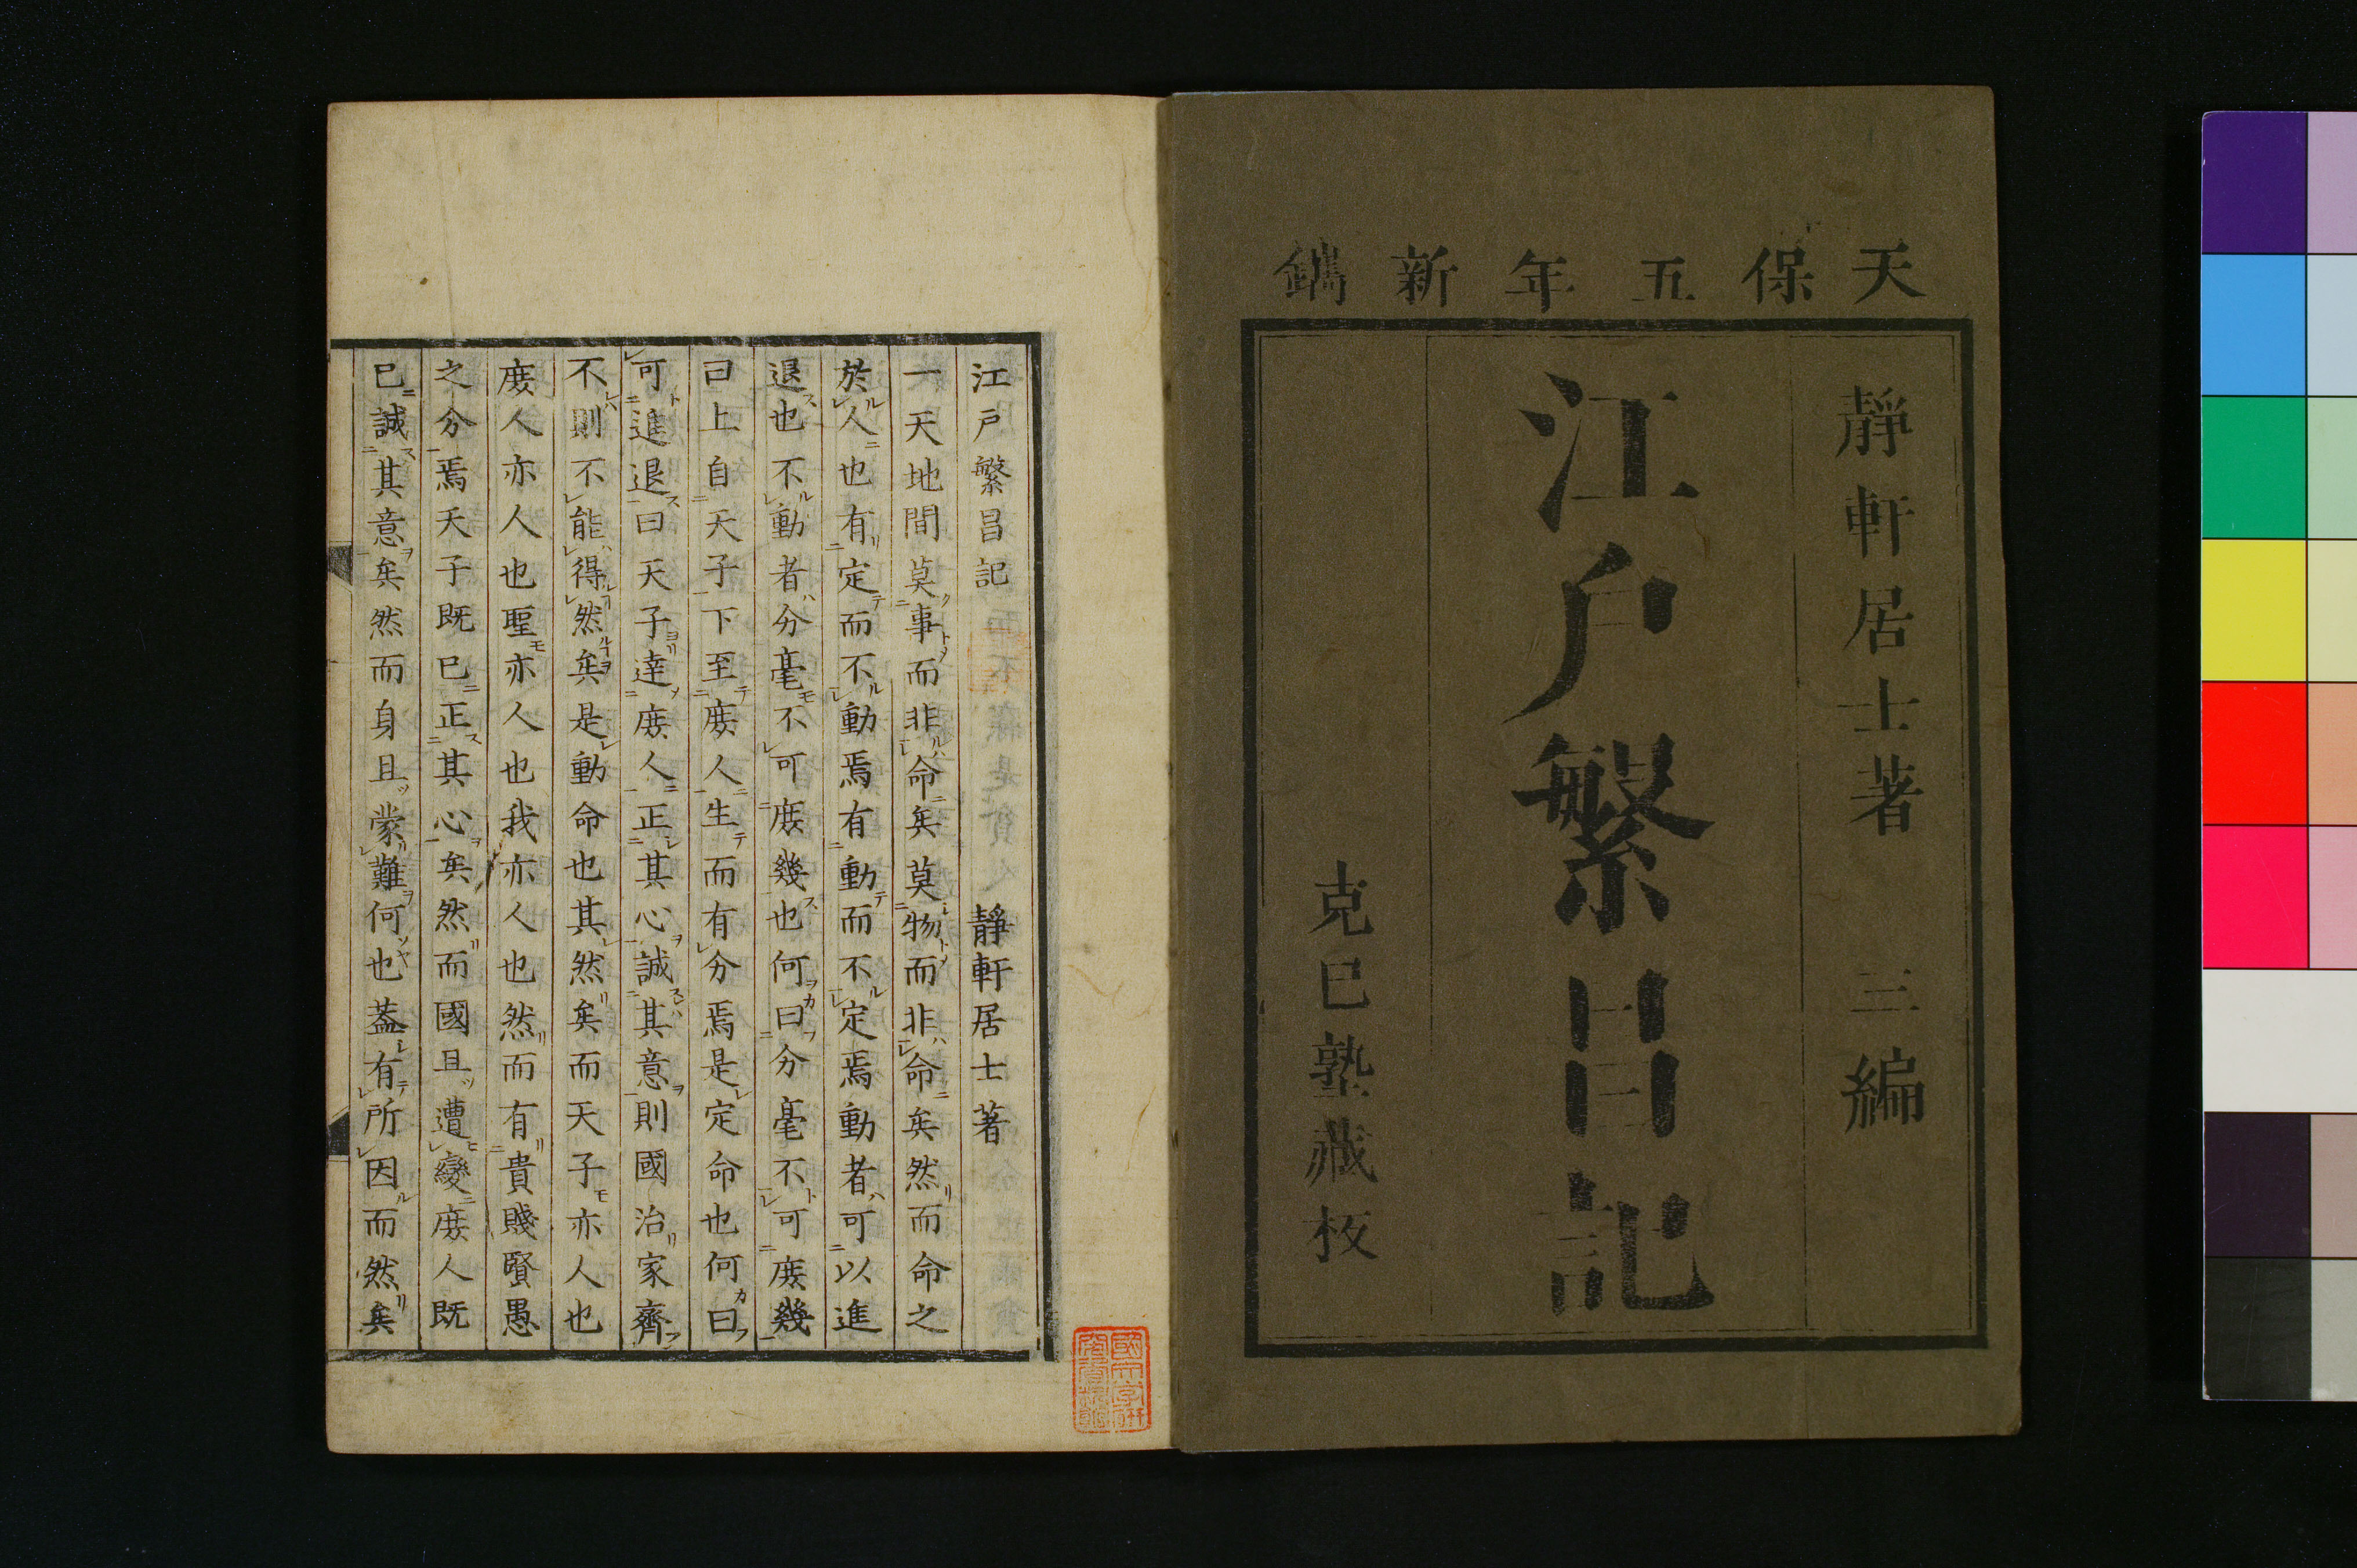 天保五年新鐫
靜軒居士著 三編
江戸繁昌記
克己塾藏板
江戸繁昌記 靜軒居士著
一天地間莫事而非命矣莫物而非命矣然而命之
於人也有定而不動焉有動而不定焉動者可以進
退也不動者分毫不可庶幾也何曰分毫不可庶幾
曰上自天子下至庶人生而有分焉是定命也何曰
可進退曰天子達庶人正其心誠其意則國治家齊
不則不能得然矣是動命也其然矣而天子亦人也
庶人亦人也聖亦人也我亦人也然而有貴賤賢愚
之分焉天子既已正其心矣然而國且遭變庶人既
已誠其意矣然而身且蒙難何也葢有所因而然矣